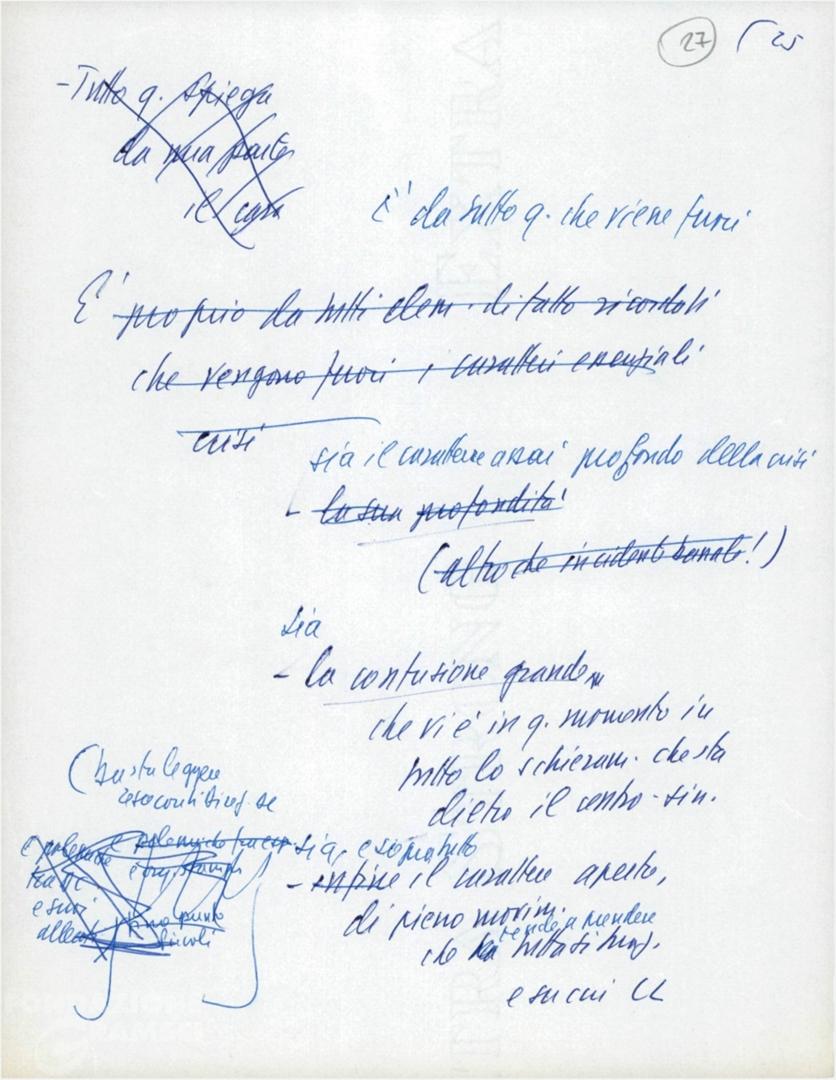 27 25
- Tutto q. spiega
da una parte
il caso
È da tutto q. che viene fuori
È proprio da tutti elem. di fatto ricordati
che vengono fuori i caratteri essenziali
crisi
sia il carattere assai profondo della crisi
- la sua profondità
(altro che incidenti banali!)
sia
- la confusione grande
che vi è in q. momento in
tutto lo schieram. che sta
dietro il centro-sin.
(basta leggere
resoconti
e polemiche
tra DC
e suoi
alleati
sia, e sopratutto
- infine il carattere aperto,
di pieno movim.
che tende a prendere
e su cui